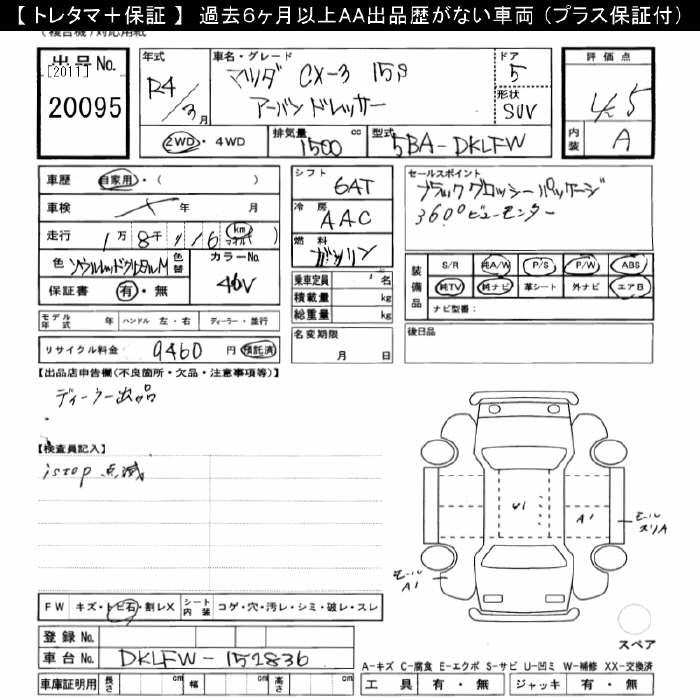 【 トレタマ＋保証 】 過去6ヶ月以上AA出品歴がない車両 (プラス保証付)
(複合機) 対応用紙
出品No. [2011] 20095
年式 R4/3月
車名・グレード マツダ CX-3 15S アーバンドレッサー
ドア 5
形状 SUV
評価点 4.5
内装 A
2WD・4WD 排気量 1500 cc 型式 5BA-DKLFW
車歴 自家用・( )
車検 年 月
走行 1万8千116 km マイル
色 ソウルレッドクリスタルM 色替 カラーNo. 46V
保証書 有・無
シフト 6AT
冷房 AAC
燃料 ガソリン
乗車定員 名
積載量 kg
総重量 kg
セールスポイント
ブラックグロッシーパッケージ
360°ビューモニター
装備品 S/R 純A/W P/S P/W ABS
純TV 純ナビ 革シート 外ナビ エアB
ナビ型番:
モデル年式 年 ハンドル 左・右 ディーラー・並行
名変期限 月 日
後日品
リサイクル料金: 9460 円 預託済
【出品店申告欄(不良箇所・欠品・注意事項等)】
ディーラー出品
【検査員記入】
istop 点滅
W1
A1
モール スリA
モール A1
FW キズ・トビ石・割レX シート内装 コゲ・穴・汚レ・シミ・破レ・スレ
スペア
登録 No.
車台 No. DKLFW-152836
A-キズ C-腐食 E-エクボ S-サビ U-凹ミ W-補修 XX-交換済
車庫証明用 長さ cm 幅 cm 高さ cm
工具 有・無 ジャッキ 有・無